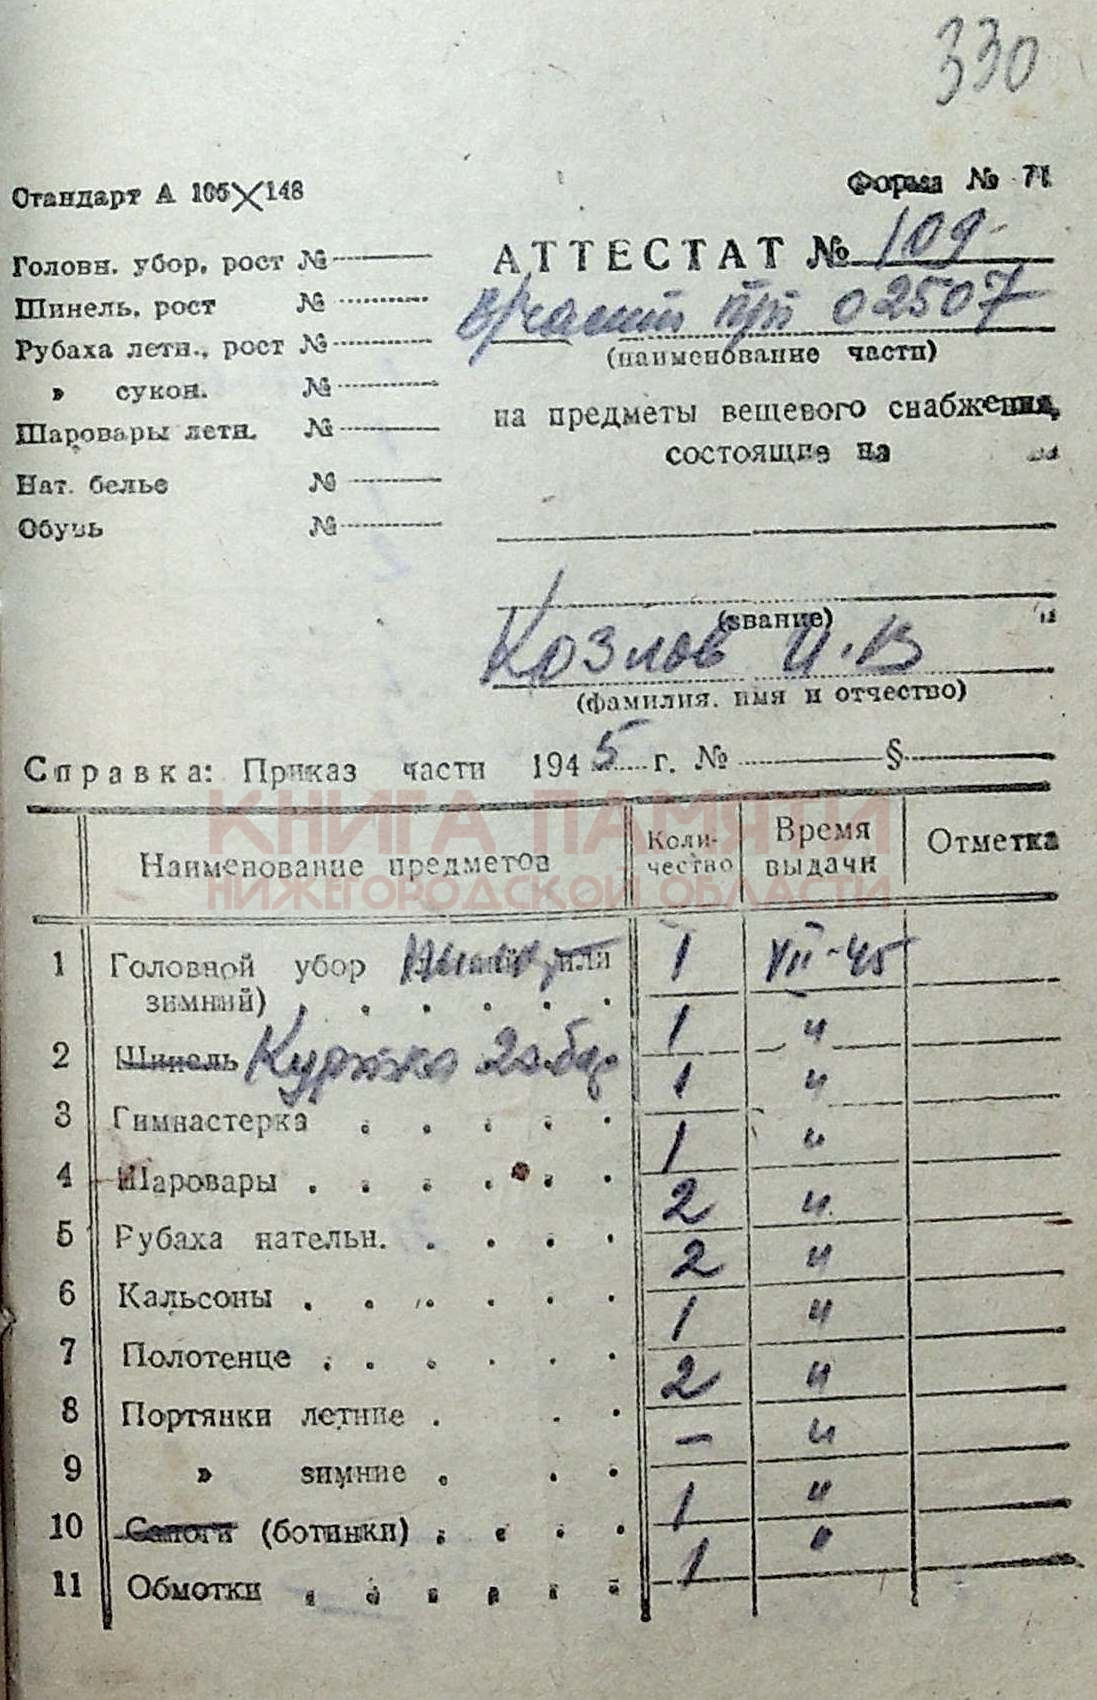 330
Стандарт А 105×148
Форма № 71
Головн. убор, рост №
Шинель, рост №
Рубаха летн., рост №
» сукон. №
Шаровары летн. №
Нат. белье №
Обувь №
АТТЕСТАТ № 109
в/части пп 02507
(наименование части)
на предметы вещевого снабжения,
состоящие на
(звание)
Козлов И.В
(фамилия, имя и отчество)
Справка: Приказ части 1945 г. № §
КНИГА ПАМЯТИ
НИЖЕГОРОДСКОЙ ОБЛАСТИ
Наименование предметов Количество Время выдачи Отметка
1 Головной убор или 1 VII-45
зимний)
2 Шинель Куртка 1 "
3 Гимнастерка 1 "
4 Шаровары 1 "
5 Рубаха нательн. 2 "
6 Кальсоны 2 "
7 Полотенце 1 "
8 Портянки летние 2 "
9 » зимние — "
10 Сапоги (ботинки) 1 "
11 Обмотки 1 "